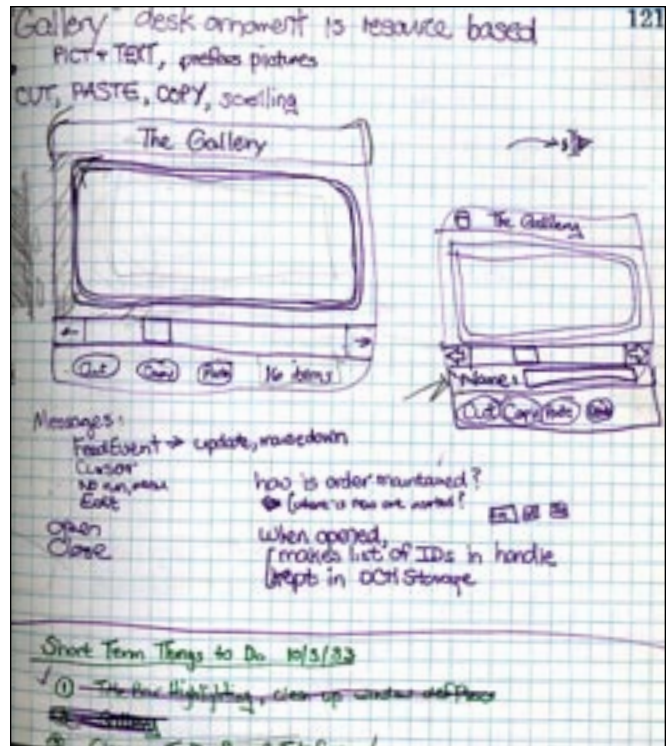 "Gallery" desk ornament is resource based
121
PICT + TEXT, prefers pictures
CUT, PASTE, COPY, scrolling
The Gallery
Cut Copy Paste 16 items
The Gallery
Name:
Cut Copy Paste
Messages:
FeedEvent → update, mousedown
Cursor
No run, menu
Edit
open
Close
how is order maintained?
where is new one inserted?
when opened,
makes list of IDs in handle
kept in DCtl Storage
Short Term Things to Do 10/3/83
① Title Bar Highlighting, clean up window defProc
②